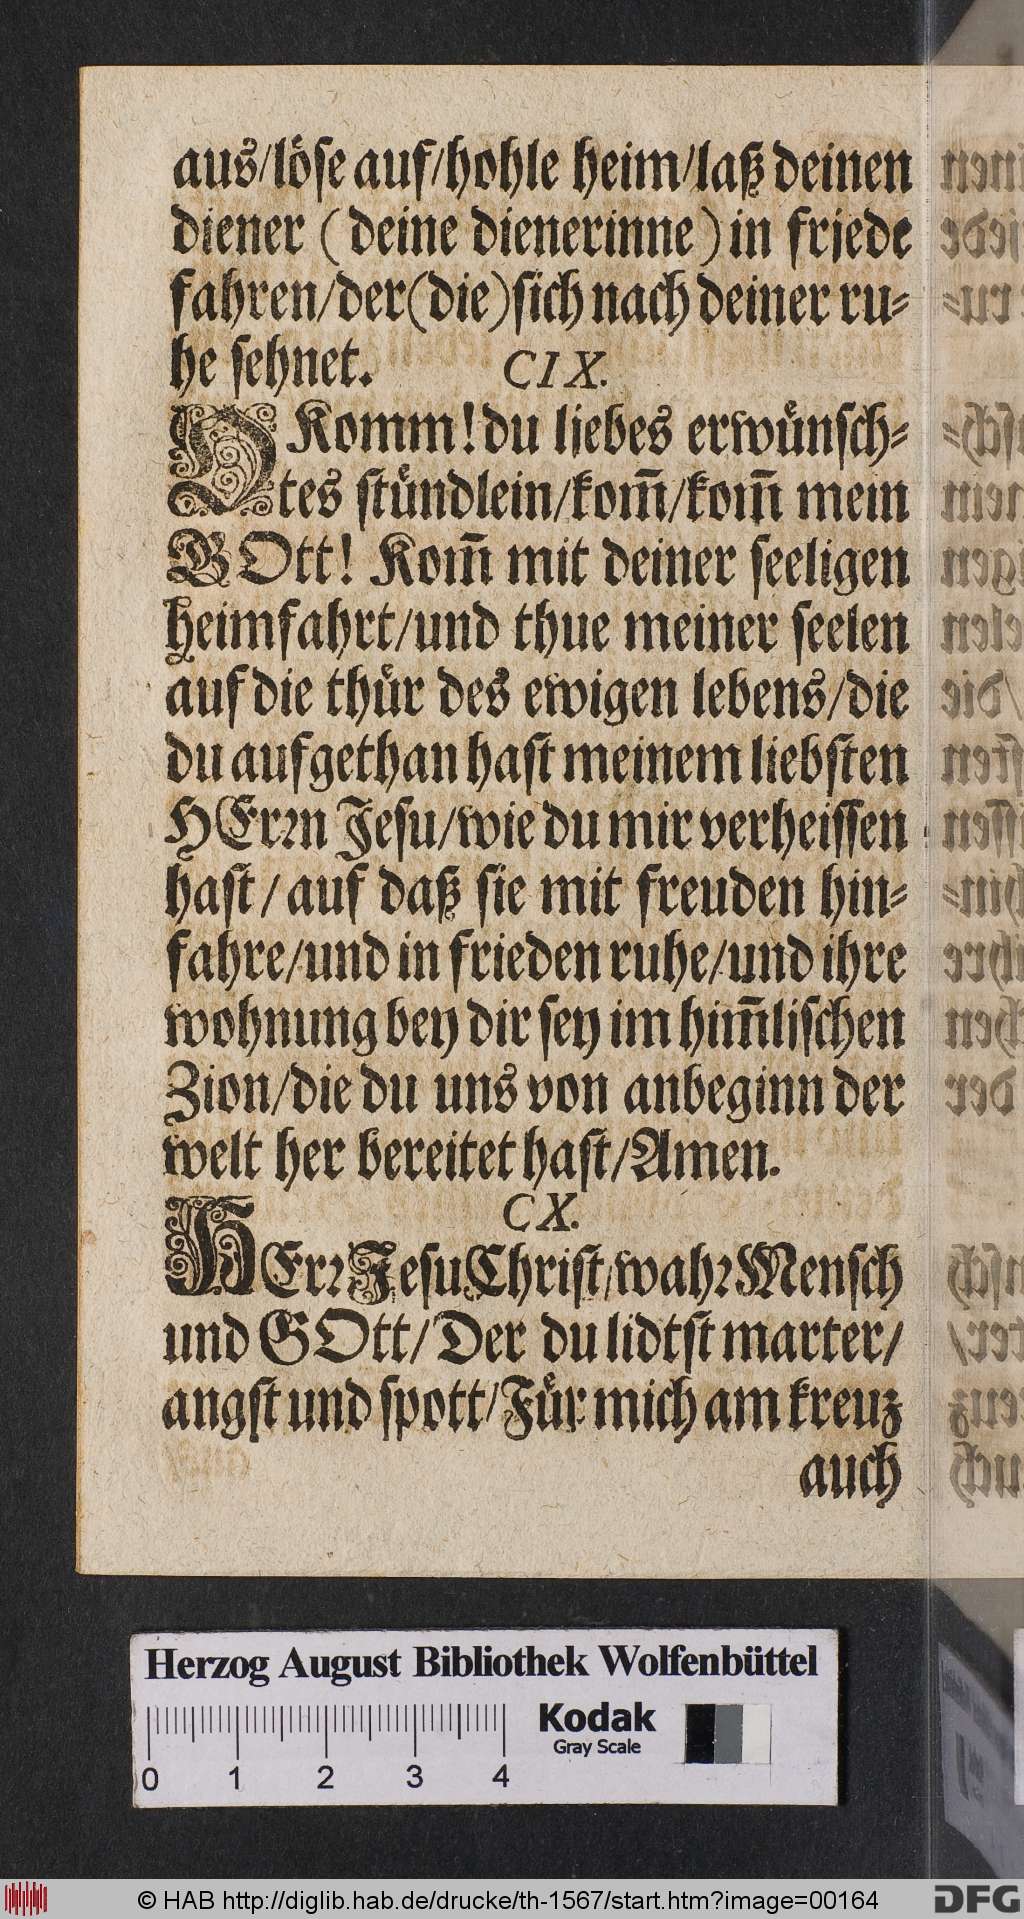 aus/löse auf/hohle heim/laß deinen
diener (deine dienerinne) in friede
fahren/der(die)sich nach deiner ru-
he sehnet.
CIX.
O Komm! du liebes erwünsch-
tes stündlein/kom̄/kom̄ mein
GOtt! Kom̄ mit deiner seeligen
heimfahrt/und thue meiner seelen
auf die thür des ewigen lebens/die
du aufgethan hast meinem liebsten
HErrn Jesu/wie du mir verheissen
hast/auf daß sie mit freuden hin-
fahre/und in frieden ruhe/und ihre
wohnung bey dir sey im him̄lischen
Zion/die du uns von anbeginn der
welt her bereitet hast/Amen.
CX.
HErr Jesu Christ/wahr Mensch
und GOtt/Der du lidtst marter/
angst und spott/Für mich am kreuz
auch
Herzog August Bibliothek Wolfenbüttel
Kodak
Gray Scale
0 1 2 3 4
© HAB http://diglib.hab.de/drucke/th-1567/start.htm?image=00164
DFG